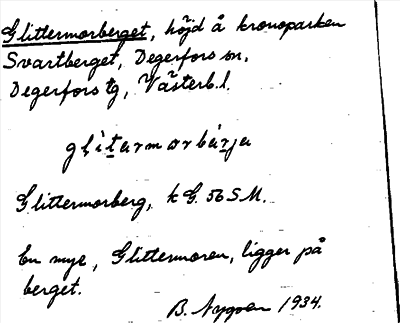 Glittermorberget, höjd å kronoparken
Svartberget, Degerfors sn,
Degerfors tg, Västerb.l.
glìtarmorbàrja
Glittermorberg, k G. 56 S.M.
En myr, Glittermoren, ligger på
berget.
B. Nygren 1934.